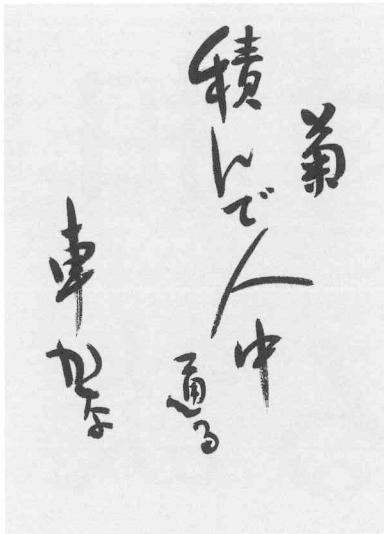 菊
積んで人中
通る
車かな